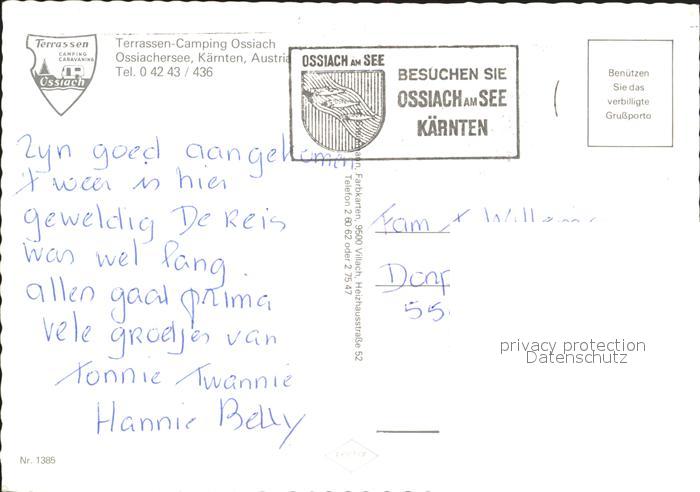 Terrassen
CAMPING
CARAVANING
Ossiach
Terrassen-Camping Ossiach
Ossiachersee, Kärnten, Austria
Tel. 0 42 43 / 436
OSSIACH AM SEE
BESUCHEN SIE
OSSIACH AM SEE
KÄRNTEN
Benützen
Sie das
verbilligte
Grußporto
Zyn goed aangekomen
't weer is hier
geweldig De Reis
was wel lang.
allen gaat prima
vele groetjes van
Tonnie Twannie
Hannie Belly
Farbkarten, 9500 Villach, Heizhausstraße 52
Telefon 2 60 62 oder 2 75 47
Fam
55
privacy protection
Datenschutz
Nr. 1385